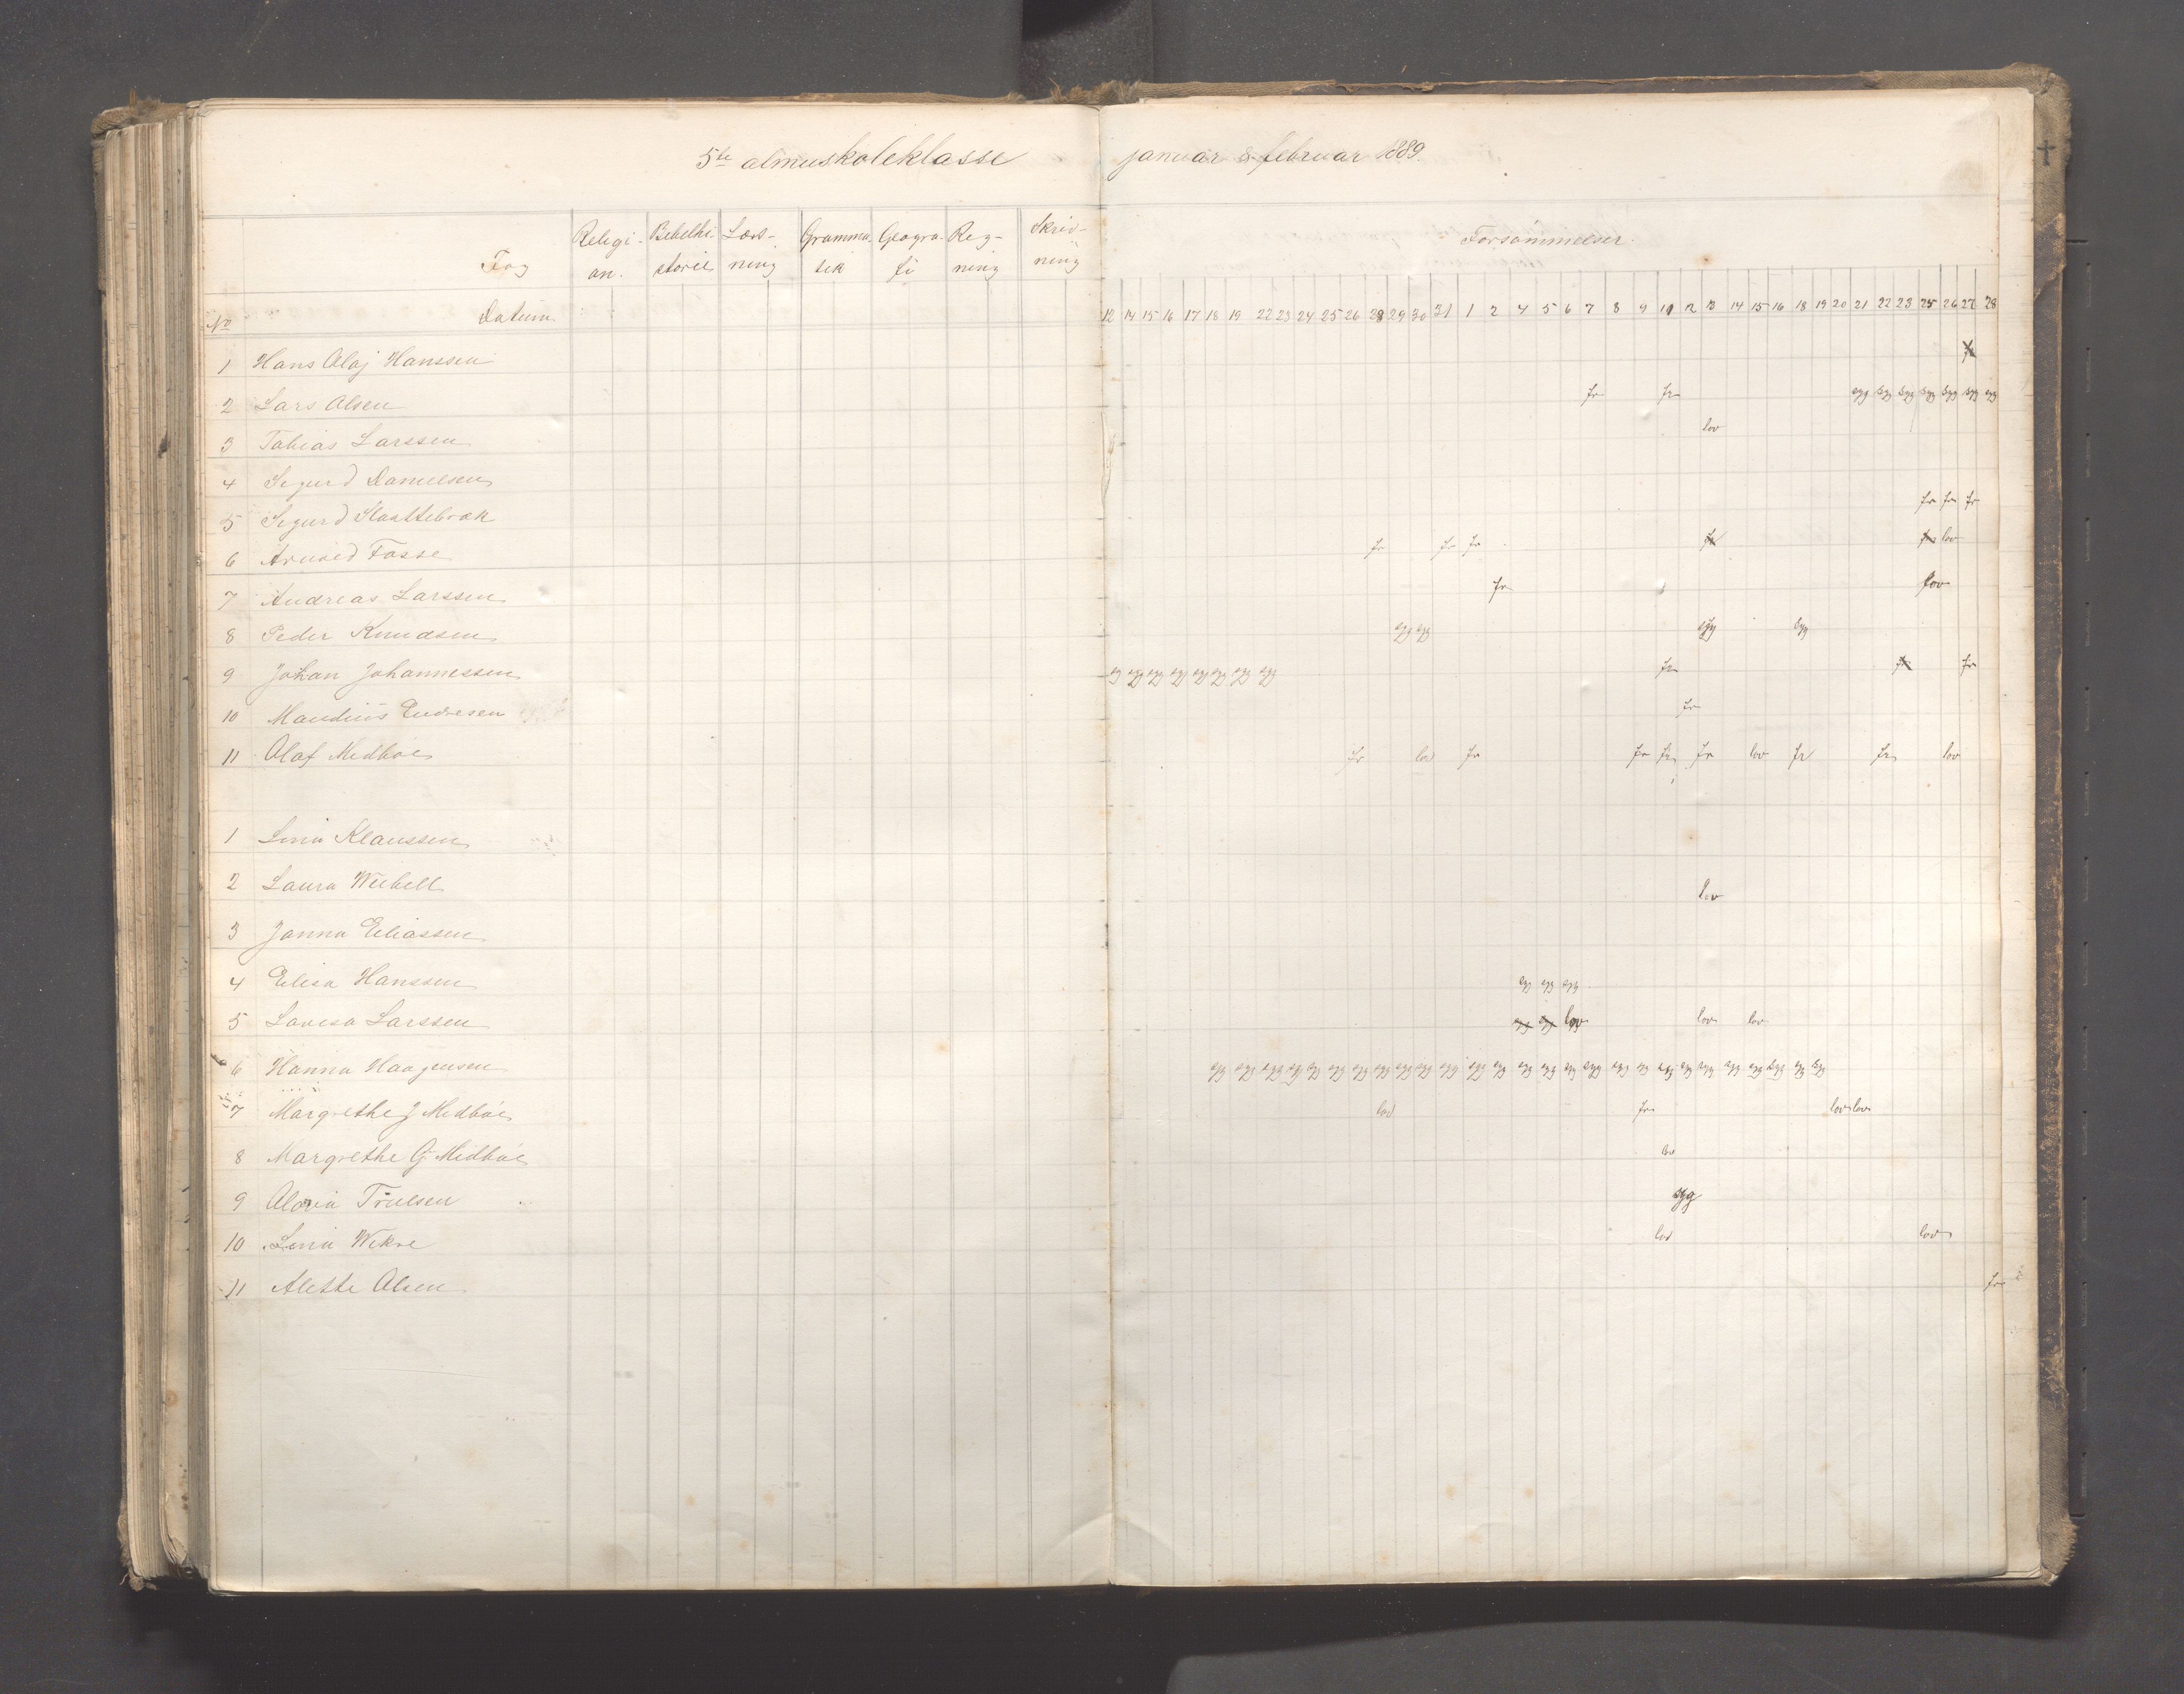 5te almuskoleklasse januar & februar 1889.
Fag Religi-on. Bibelhi-storie Læs-ning Gramma-tik Geogra-fi Reg-ning Skriv-ning Forsømmelser.
No Datum 12 14 15 16 17 18 19 22 23 24 25 26 28 29 30 31 1 2 4 5 6 7 8 9 11 12 13 14 15 16 18 19 20 21 22 23 25 26 27 28
1 Hans Olaj Hanssen
2 Lars Olsen fr fr syg syg syg syg syg syg syg
3 Tobias Larssen lov
4 Sigurd Danielsen
5 Sigurd Slaattebræk fr fr fr
6 Arnold Fosse fr fr fr fr fr lov
7 Andreas Larssen fr lov
8 Peder Knudsen syg syg syg syg
9 Johan Johannessen syg syg syg syg syg syg syg syg fr fr fr
10 Maudius Endresen fr
11 Olaf Medbøe fr lov fr fr fr fr lov fr fr lov
1 Lina Klaussen
2 Laura Wiebell lov
3 Janna Eliassen
4 Elisa Hanssen syg syg syg
5 Lovisa Larssen syg syg lov lov lov
6 Hanna Haagensen syg syg syg syg syg syg syg syg syg syg syg syg syg syg syg syg syg syg syg syg syg syg syg syg syg syg syg
7 Margrethe J Medbøe lov fr lov lov
8 Margrethe G Medbøe lov
9 Alovia Truelsen syg
10 Lina Wikre lov lov
11 Alette Olsen fr